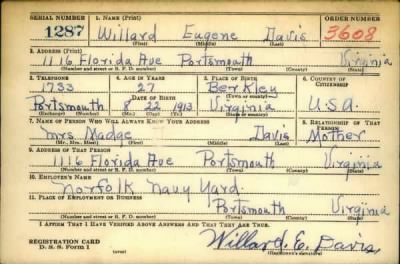 SERIAL NUMBER 1. NAME (Print) ORDER NUMBER
1287 Willard Eugene Davis 3608
(First) (Middle) (Last)
2. ADDRESS (Print)
1116 Florida Ave Portsmouth Virginia
(Number and street or R. F. D. number) (Town) (County) (State)
3. TELEPHONE 4. AGE IN YEARS 5. PLACE OF BIRTH 6. COUNTRY OF CITIZENSHIP
1733 27 Berkley
DATE OF BIRTH (Town or county)
Portsmouth 8 22 1913 Virginia U.S.A.
(Exchange) (Number) (Mo.) (Day) (Yr.) (State or country)
7. NAME OF PERSON WHO WILL ALWAYS KNOW YOUR ADDRESS 8. RELATIONSHIP OF THAT PERSON
Mrs Madge Davis Mother
(Mr., Mrs., Miss) (First) (Middle) (Last)
9. ADDRESS OF THAT PERSON
1116 Florida Ave Portsmouth Virginia
(Number and street or R. F. D. number) (Town) (County) (State)
10. EMPLOYER'S NAME
Norfolk Navy Yard.
11. PLACE OF EMPLOYMENT OR BUSINESS
Portsmouth Virginia
(Number and street or R. F. D. number) (Town) (County) (State)
I AFFIRM THAT I HAVE VERIFIED ABOVE ANSWERS AND THAT THEY ARE TRUE.
REGISTRATION CARD
D. S. S. Form 1 (over) Willard E. Davis
(Registrant's signature)